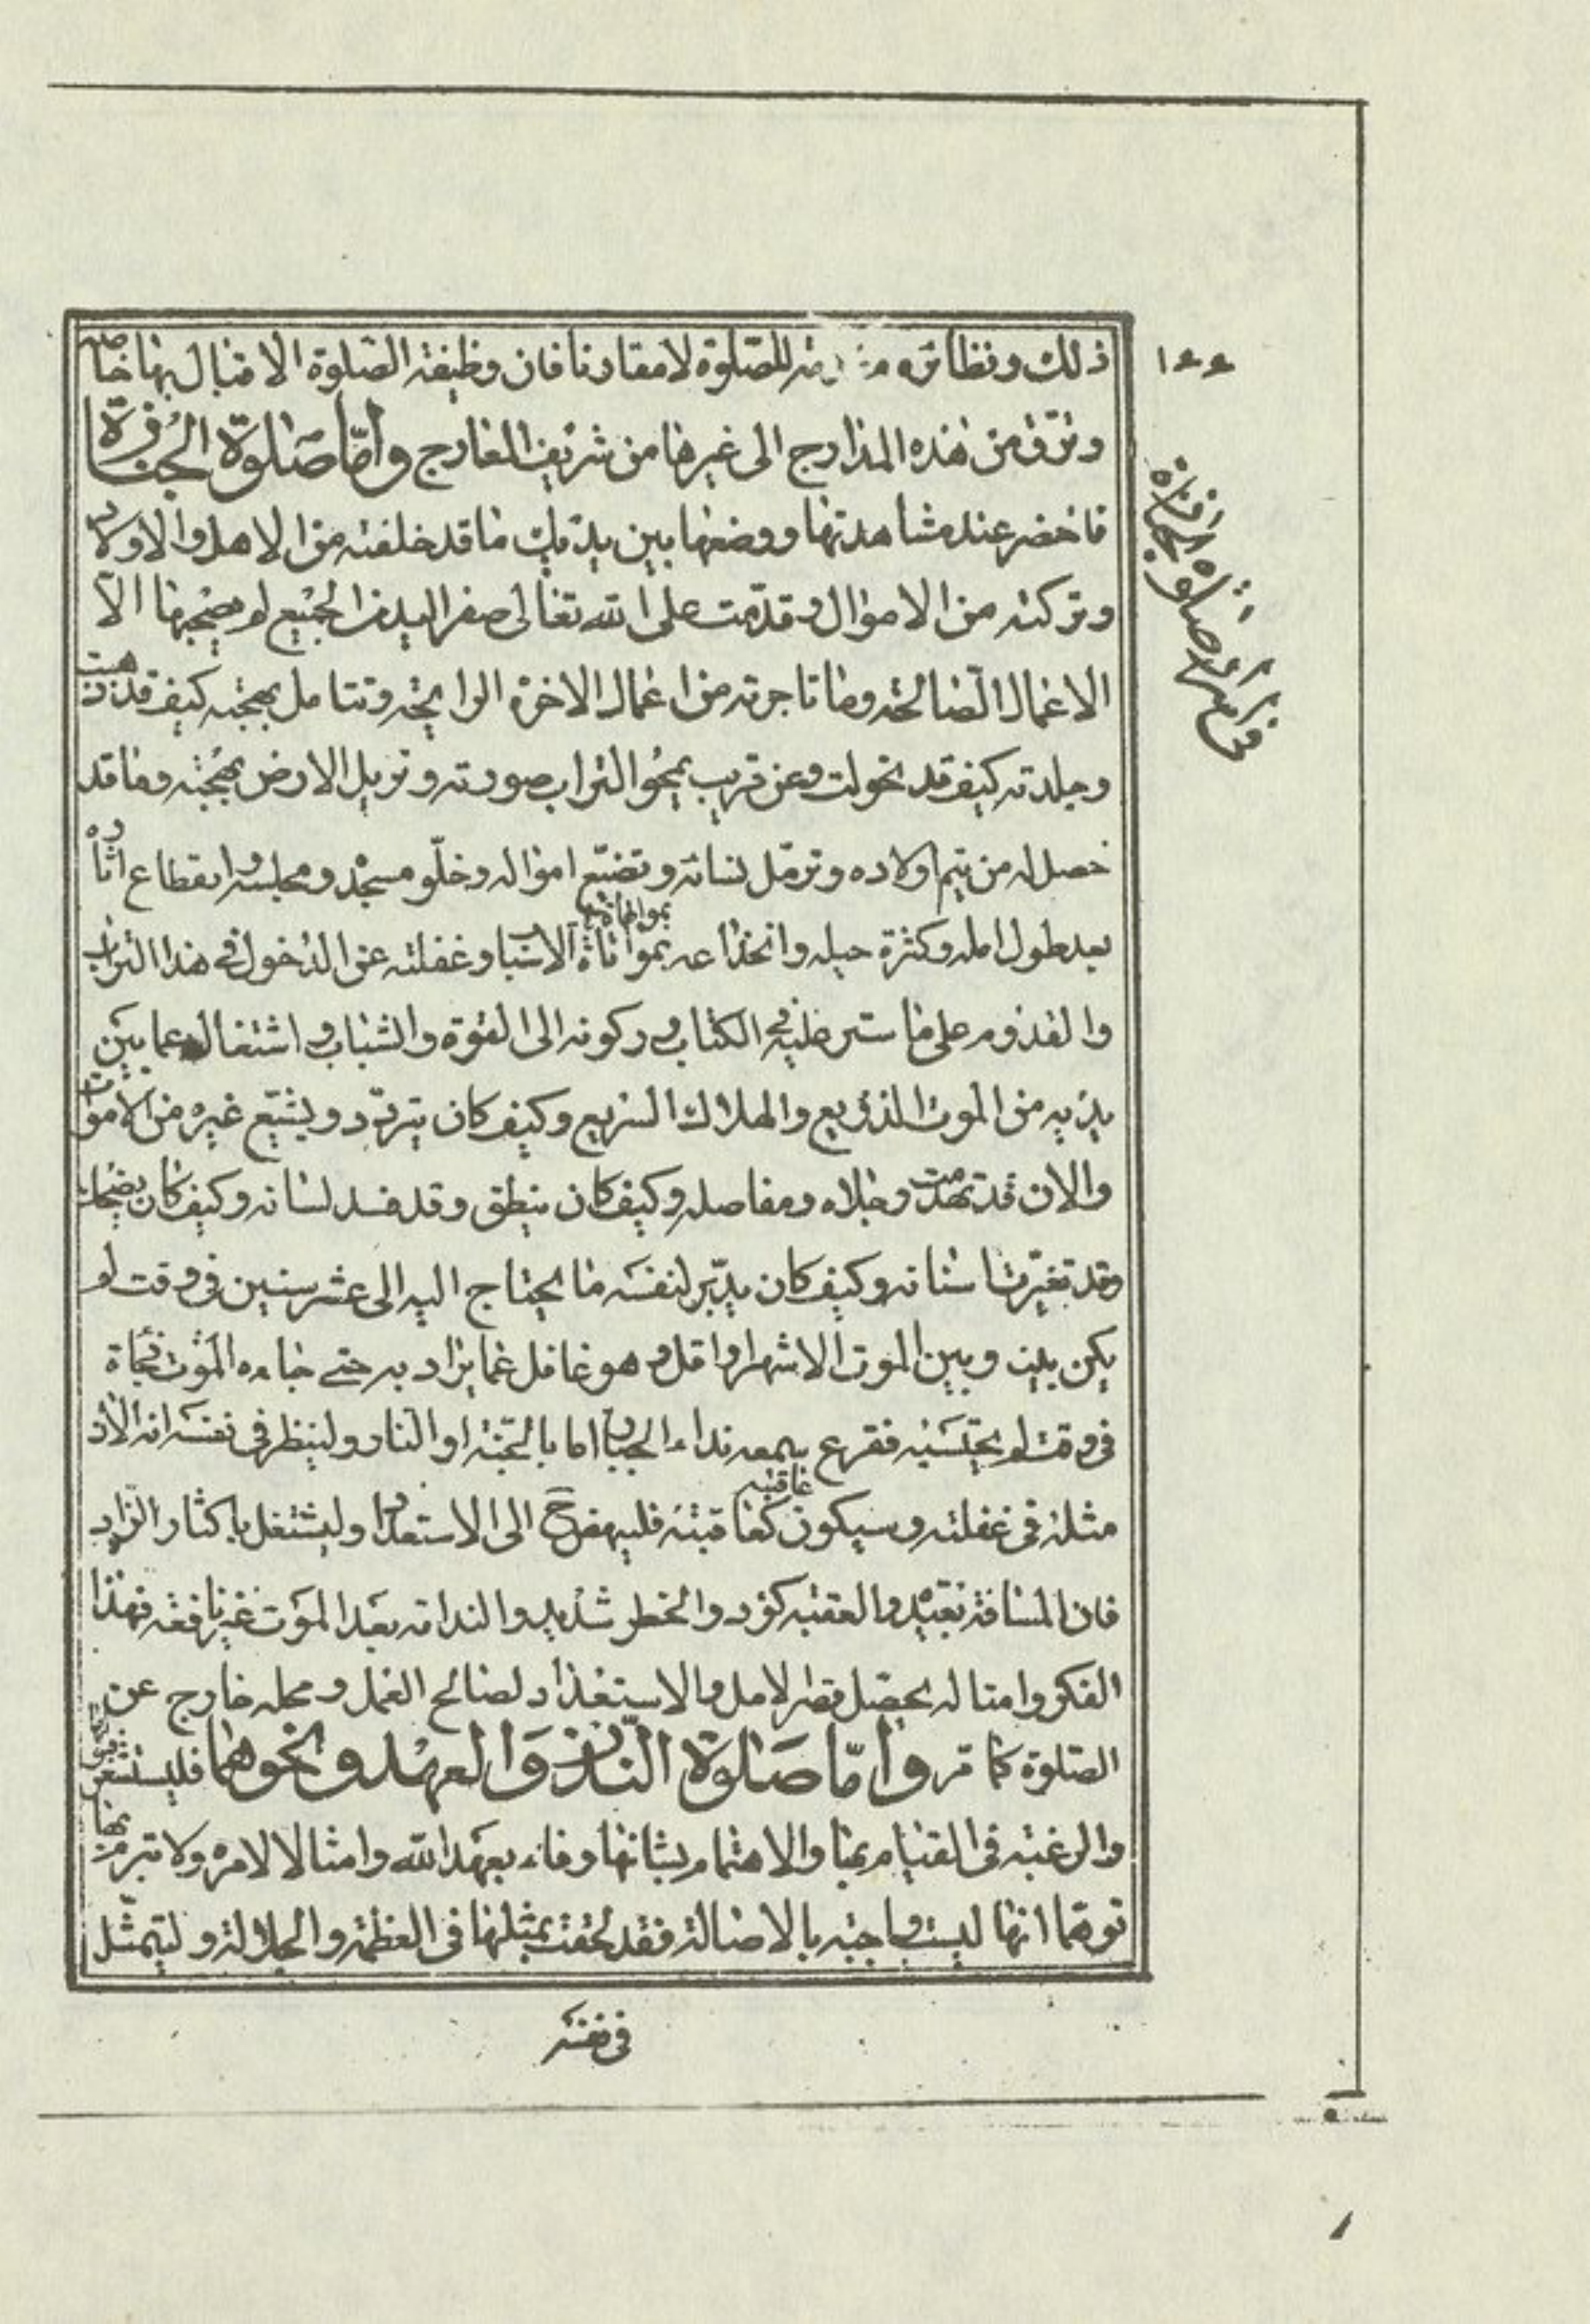 ١٤٤
ذلك ونظائره للصّلوة لا مقارنا فان وظيفة الصّلوة الاقبال بها خاصة
وترقّ من هذه المدارج الى غيرها من شريف المعارج وأمّا صَلوة الجُنازة
فاحضر عند مشاهدتها ووضعها بين يديك ما قد خلفته من الاهل والاولاد
وتركته من الاموال وقدّمت على الله تعالى صفر اليد من الجميع لم يصحبها الاّ
الاعمال الصّالحة وما تاجرته من اعمال الاخرة الرابحة وتتامل بهجته كيف قد ذهبت
وجلدته كيف قد تحولت وعن قريب يمحو التراب صورته وتزيل الارض بهجته وما قد
حصل له من يتم اولاده وترمّل نسائه وتضيّع امواله وخلّو مسجده ومجلسه وانقطاع اثاره
بعد طول امله وكثرة حيله وانخداعه بمواتاة الاسباب وغفلته عن الدخول في هذا التراب
بمواتاة
والقدوم على ما سطر عليه في الكتاب وركونه الى القوة والشباب واشتغاله عما بين
يديه من الموت الذريع والهلاك السريع وكيف كان يتردّد ويشيّع غيره من الاموات
والان قد تهدمت رجلاه ومفاصله وكيف كان ينطق وقد فسد لسانه وكيف كان يضحك
وقد تغيّرت اسنانه وكيف كان يدبّر لنفسه ما لا يحتاج اليه الى عشر سنين في وقت لم
يكن بينه وبين الموت الا شهر او اقل وهو غافل عما يراد به حتى جاءه الموت فجاة
في وقت لم يحتسبه فقرع سمعه نداء الجبار اما بالجنّة او النار ولينظر في نفسه انه الان
مثله في غفلته وسيكون كعاقبته فلينهض ح الى الاستعداد وليشتغل باكثار الزاد
عاقبته
فان المسافة بعيدة والعقبة كؤد والخطر شديد والندامة بعد الموت غير نافعة فهذا
الفكر وامثاله يحصل قصر الامل والاستعداد لصالح العمل ومحله خارج عن
الصّلوة كما مر وامّا صَلوة النّذر وَالعهد ونحوهما فليستشعر قبل
والرغبة في القيام بها والاهتمام بشانها وفاء بعهد الله وامتثالا لامره ولا تبرم بها
توهما انها ليست واجبة بالاصالة فقد لحقت بمثلها في العظمة والجلالة وليتمثّل
في نفسه
من اسرار صلوة الجنازة